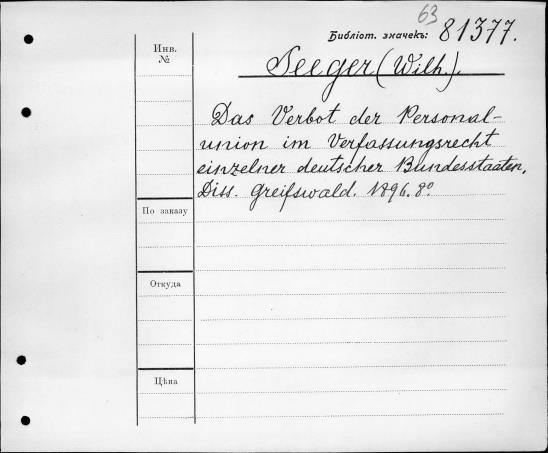 63
Библіот. значекъ: 81377.
Инв.
№
Seeger (Wilh.).
Das Verbot der Personal-
union im Verfassungsrecht
einzelner deutscher Bundesstaaten,
Diss. Greifswald. 1896. 8°
По заказу
Откуда
Цѣна